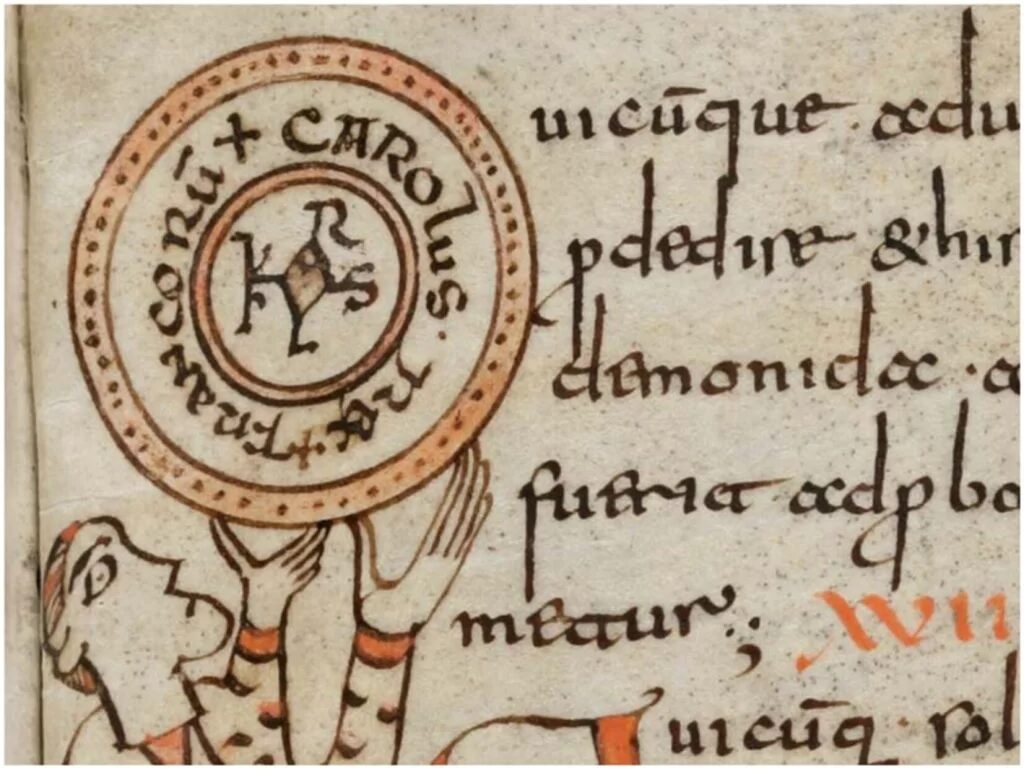 + CAROlus · REX + FRANCORŪ
K R S L
uicūque · adu
pdedire & hin
demonida · a
fuerit adp bo
metur;
XVII
uicūq · sol